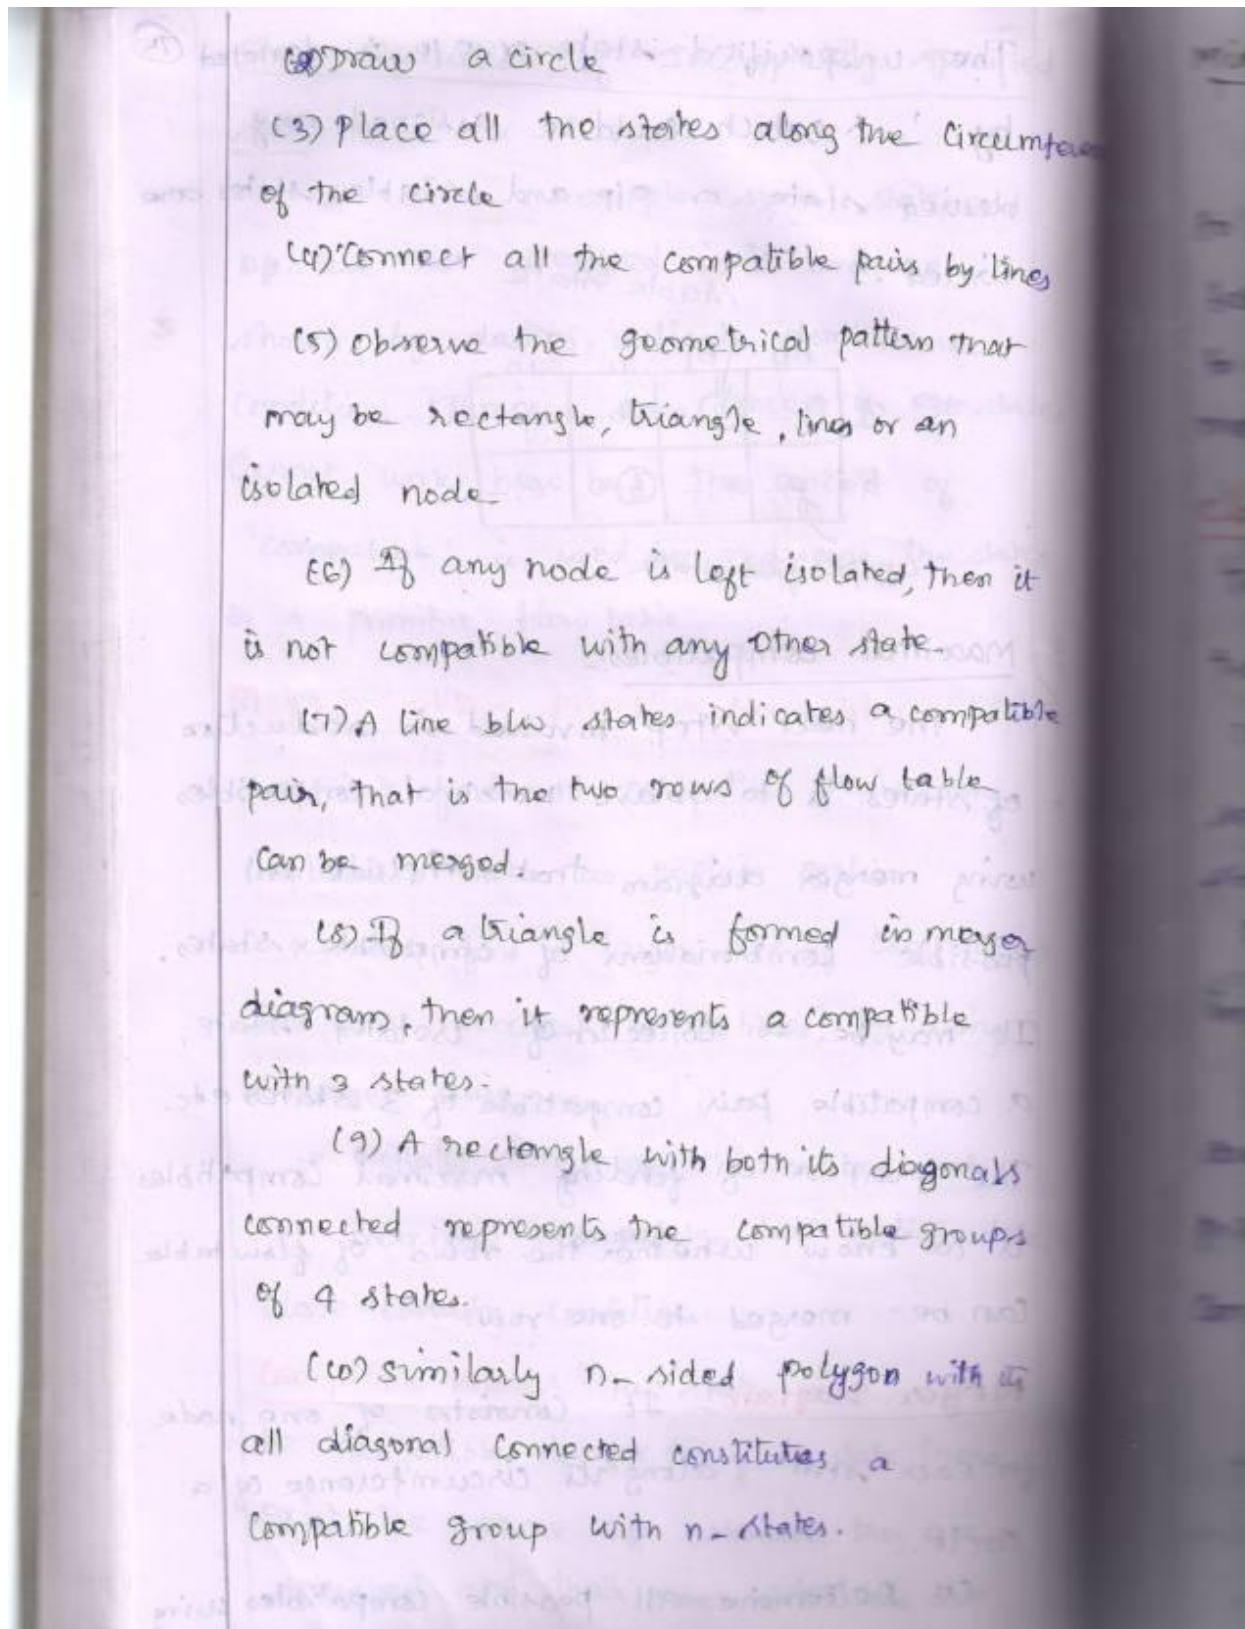 (2) Draw a circle
(3) Place all the states along the Circumference
of the circle
(4) Connect all the compatible pairs by lines
(5) Observe the geometrical pattern that
may be rectangle, triangle, lines or an
isolated node.
(6) If any node is left isolated, then it
is not compatible with any other state.
(7) A line b/w states indicates a compatible
pair, that is the two rows of flow table
can be merged.
(8) If a triangle is formed in merger
diagram, then it represents a compatible
with 3 states.
(9) A rectangle with both its diagonals
connected represents the compatible groups
of 4 states.
(10) Similarly n-sided polygon with its
all diagonal connected constitutes a
compatible group with n-states.